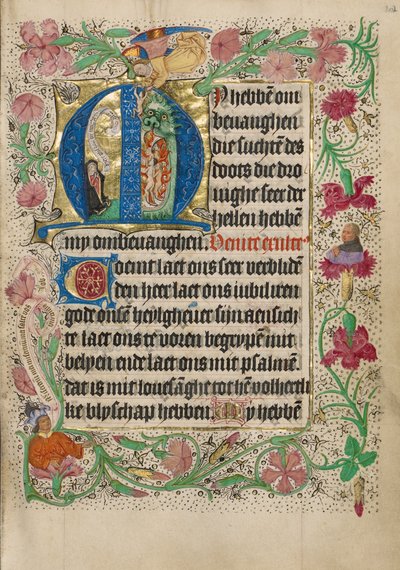 My hebbē om
beuanghen
die suchtē des
doots die dro
uighe seer der
hellen hebbē
my ombeuanghen. Venite exulteꝰ
Coemt laet ons seer verblidē
den heer laet ons iubiliren
gode onsē heylgheuer sijn aensich
te laet ons te voren begrypen mit
belyen ende laet ons mit psalmē
dat is mit louesāghe tot hē volhertli
ke blyschap hebben. My hebbē